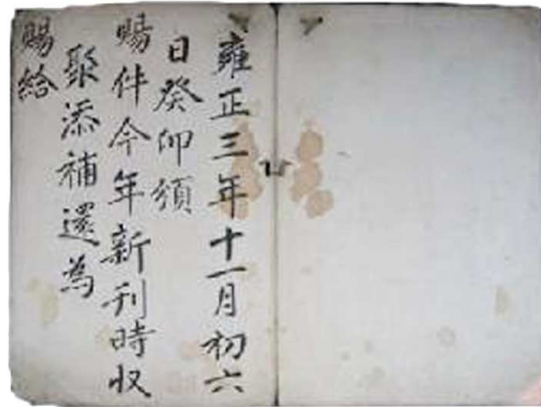 雍正三年十一月初六
日癸仰須
賜件今年新刊時収
聚添補還為
賜給